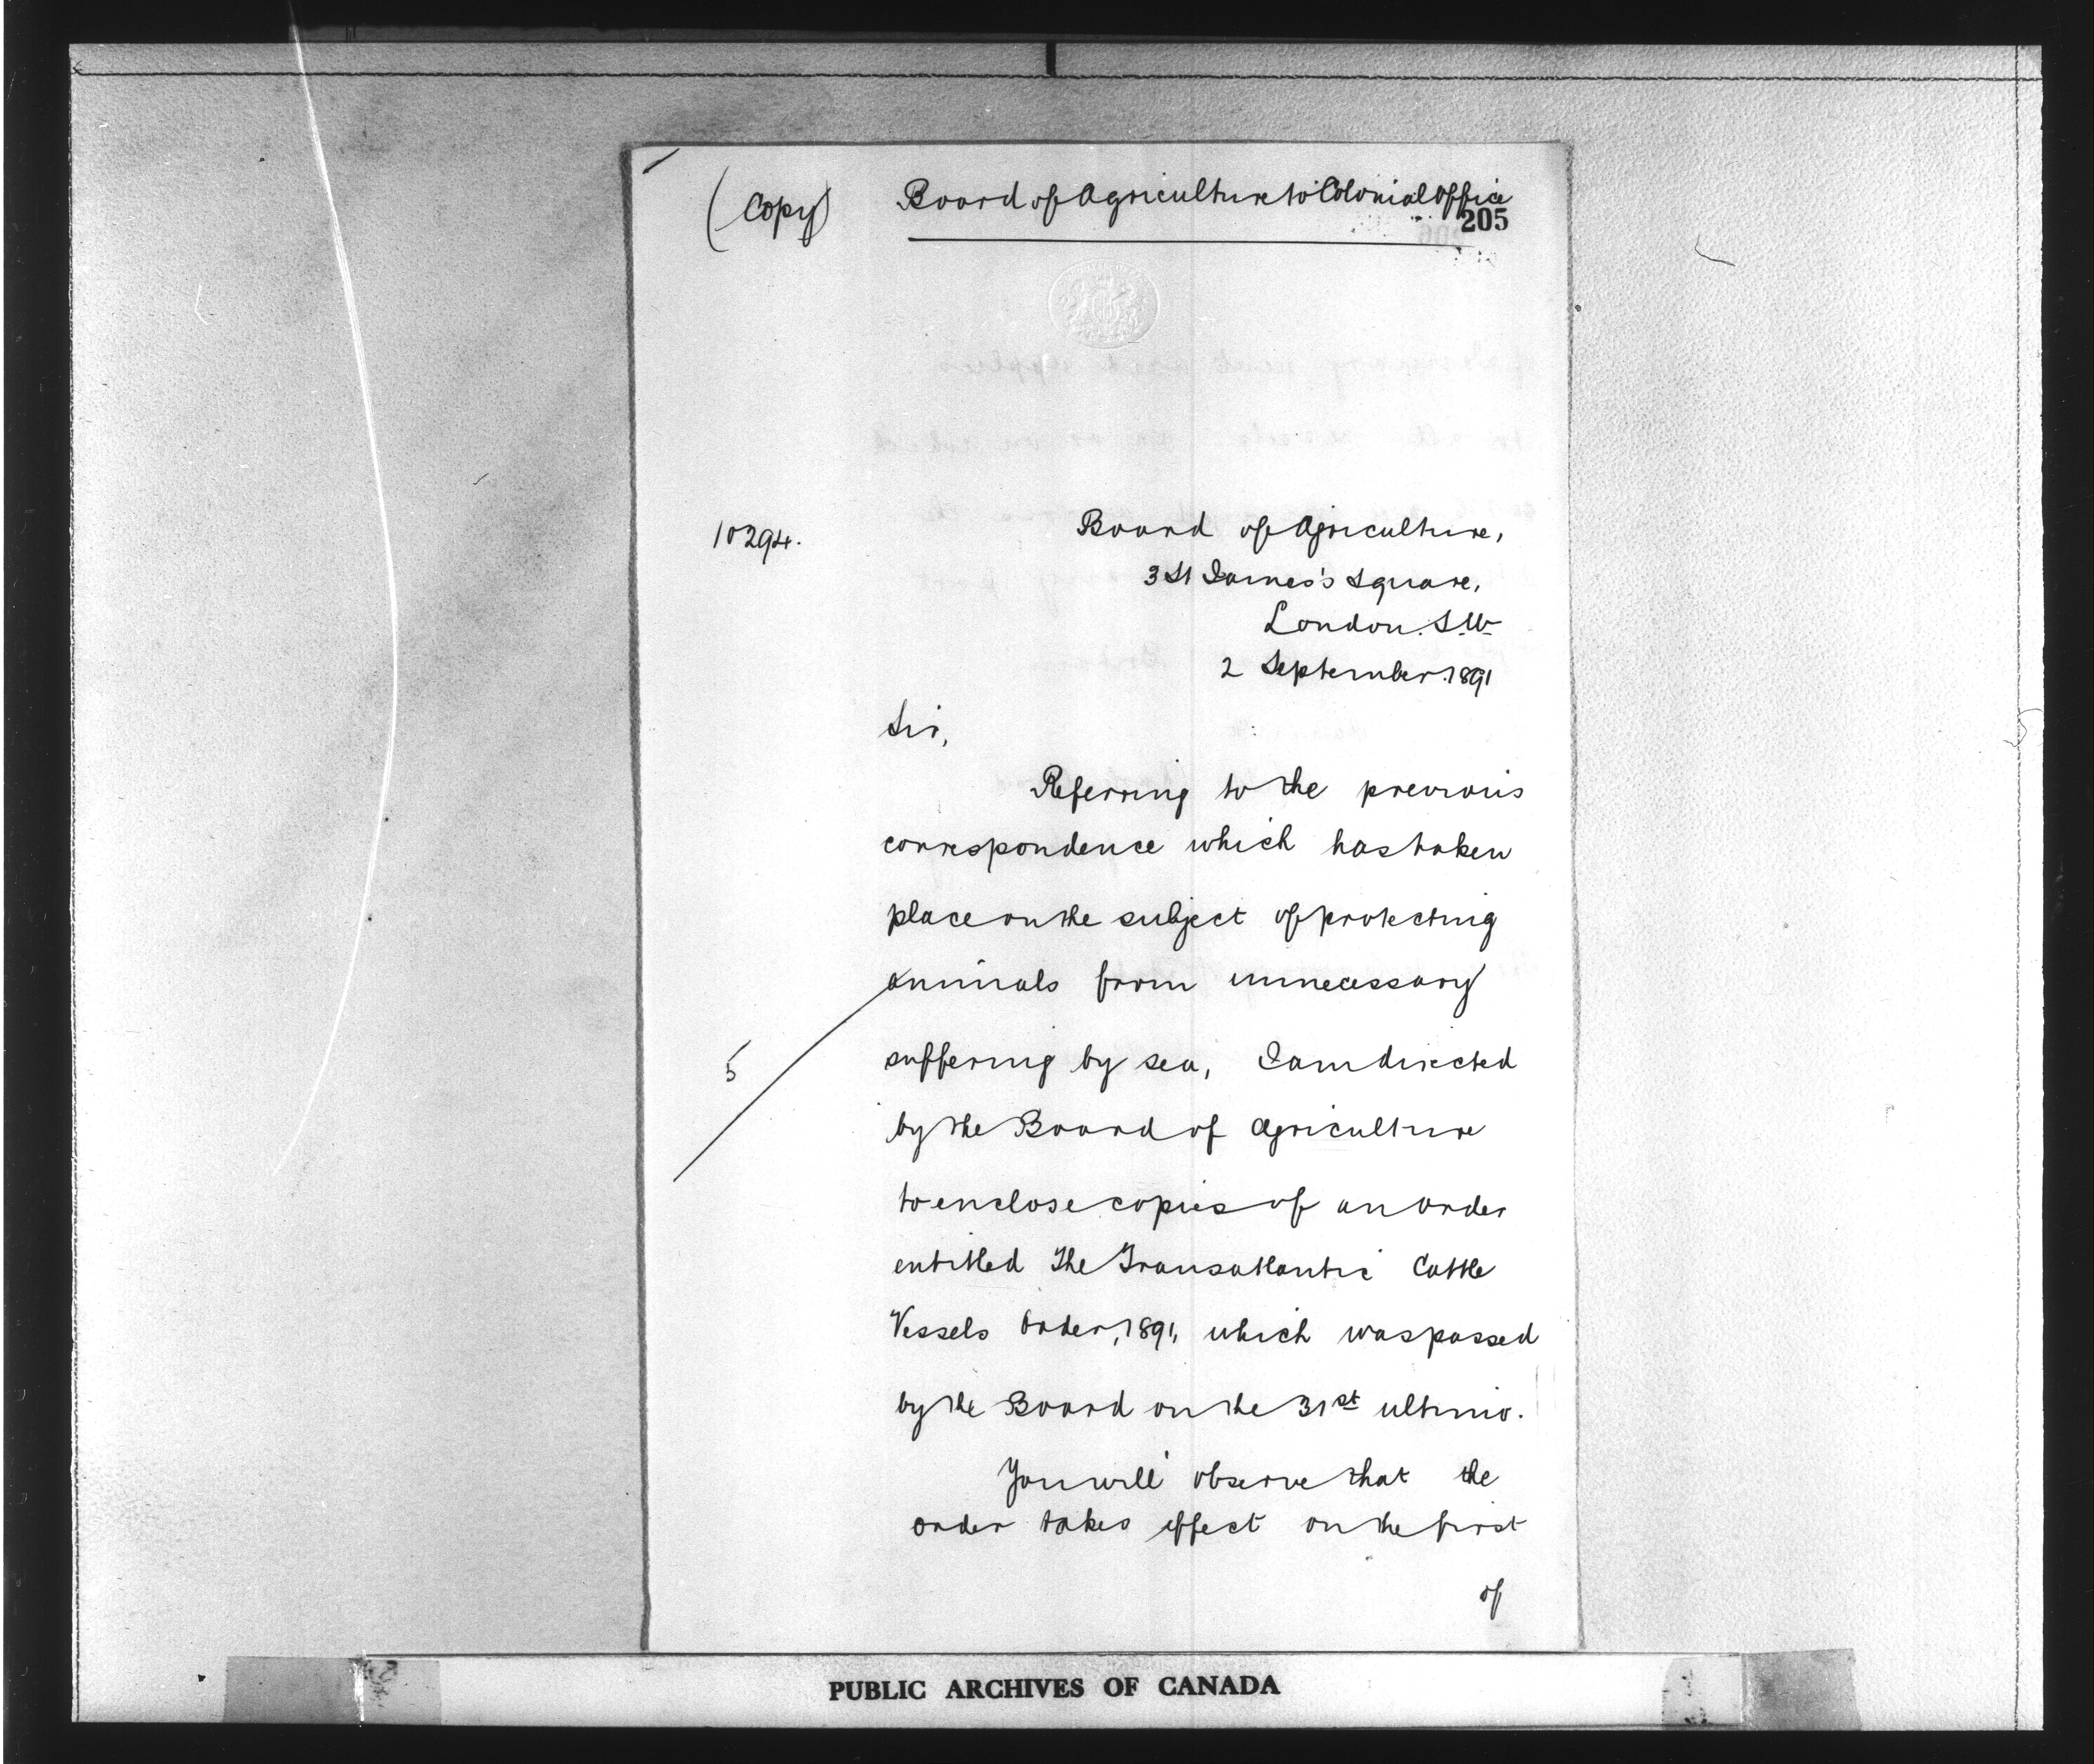 (Copy) Board of Agriculture to Colonial Office
205
10294.
Board of Agriculture,
3 St James's Square,
London. S.W.
2 September. 1891
Sir,
Referring to the previous
correspondence which has taken
place on the subject of protecting
animals from unnecessary
suffering by sea, I am directed
5
by the Board of Agriculture
to enclose copies of an order
entitled The Transatlantic Cattle
Vessels Order, 1891, which was passed
by the Board on the 31st ultimo.
You will observe that the
order takes effect on the first
of
PUBLIC ARCHIVES OF CANADA